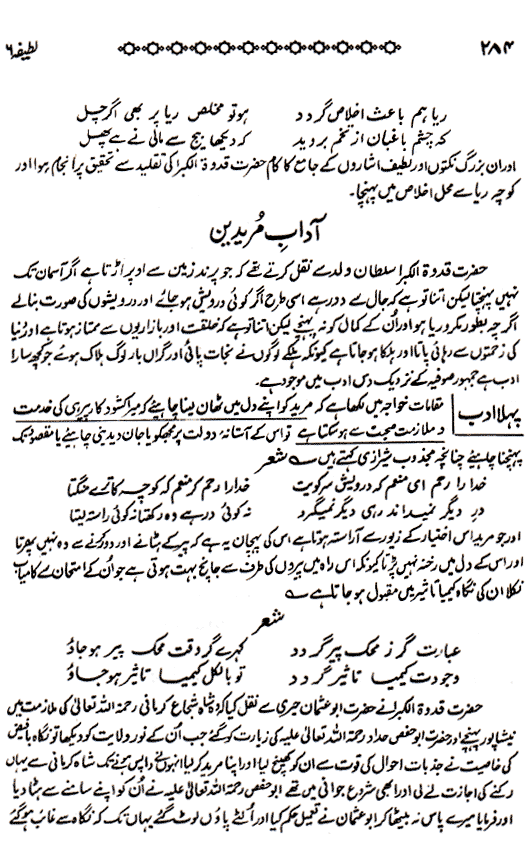 ۲۸۴ لطیفہ ۶
ریا ہم باعث اخلاص گردد ہو تو مخلص ریا پر بھی اگر چل
کہ چشم باغبان از تخم بر دید کہ دیکھا بیج سے مالی نے ہے پھل
اور ان بزرگ نکتوں اور لطیف اشاروں کے جامع کا کام حضرت قدوۃ الکبرا کی تقلید سے تحقیق پر انجام ہوا اور
کوچہ ریا سے محل اخلاص میں پہنچا۔
آدابِ مُریدین
حضرت قدوۃ الکبرا سلطان ولد سے نقل کرتے تھے کہ جو پرند زمین سے اوپر اڑتا ہے اگر آسمان تک
نہیں پہنچتا لیکن اتنا تو ہے کہ جال سے دور ہے اسی طرح اگر کوئی درویش ہو جائے اور درویشوں کی صورت بنا لے
اگرچہ بطور مکر و ریا ہو اور اُن کے کمال کو نہ پہنچے لیکن اتنا تو ہے کہ خلقت اور بازاریوں سے ممتاز ہوتا ہے اور دُنیا
کی زحمتوں سے رہائی پاتا اور ہلکا ہو جاتا ہے کیونکہ ہلکے لوگوں نے نجات پائی اور گراں بار لوگ ہلاک ہوئے جو کچھ سارا
ادب ہے جمہور صوفیہ کے نزدیک دس ادب میں موجود ہے۔
پہلا ادب مقامات خواجہ میں لکھا ہے کہ مرید کو اپنے دل میں ٹھان لینا چاہیئے کہ میرا کشود کار پیر ہی کی خدمت
و ملازمت صحبت سے ہو سکتا ہے تو اس کے آستانۂ دولت پر مجھکو یا جان دیدینی چاہیئے یا مقصود تک
پہنچنا چاہیئے چنانچہ مجذوب شیرازی کہتے ہیں شعر
خدا را رحم ای منعم کہ درویش سر کویت خدا را رحم کر منعم کہ کوچہ کا ترے منگتا
در دیگر نمیداند رہی دیگر نمیگیرد نہ کوئی در ہے وہ رکھتا نہ کوئی راستہ لیتا
اور جو مرید اس اختیار کے زیور سے آراستہ ہوتا ہے اس کی پہچان یہ ہے کہ پیر کے ہٹانے اور دور کرنے سے وہ نہیں پھرتا
اور اس کے دل میں رخنہ نہیں پڑتا کیونکہ اس راہ میں پیروں کی طرف سے جانچ بہت ہوتی ہے جو اُن کے امتحان سے کامیاب
نکلا ان کی نگاہ کیمیا تاثیر میں مقبول ہو جاتا ہے
شعر
عیارت گر ز محک پیر گردد کھرے گر وقت محک پیر ہو جاؤ
وجودت کیمیا تاثیر گردد تو بالکل کیمیا تاثیر ہو جاؤ
حضرت قدوۃ الکبرا نے حضرت ابو عثمان حیری سے نقل کیا کہ شاہ شجاع کرمانی رحمۃ اللہ تعالیٰ کی ملازمت میں
نیشاپور پہنچے اور حضرت ابو حفص حداد رحمۃ اللہ تعالیٰ علیہ کی زیارت کو گئے جب اُن کے نور ولایت کو دیکھا تو نگاہ با فیض
کی خاصیت نے جذبات احوال کی قوت سے ان کو کھینچ لیا اور اپنا مرید کر لیا انہوں نے واپس ہونے تک شاہ کرمانی سے یہاں
رکنے کی اجازت لے لی اور ابھی شروع جوانی میں تھے ابو حفص رحمۃ اللہ تعالیٰ علیہ نے اُن کو اپنے سامنے سے ہٹا دیا
اور فرمایا میرے پاس نہ بیٹھا کر ابو عثمان نے تعمیل حکم کیا اور اُلٹے پاؤں لوٹ گئے یہاں تک کہ نگاہ سے غائب ہو گئے